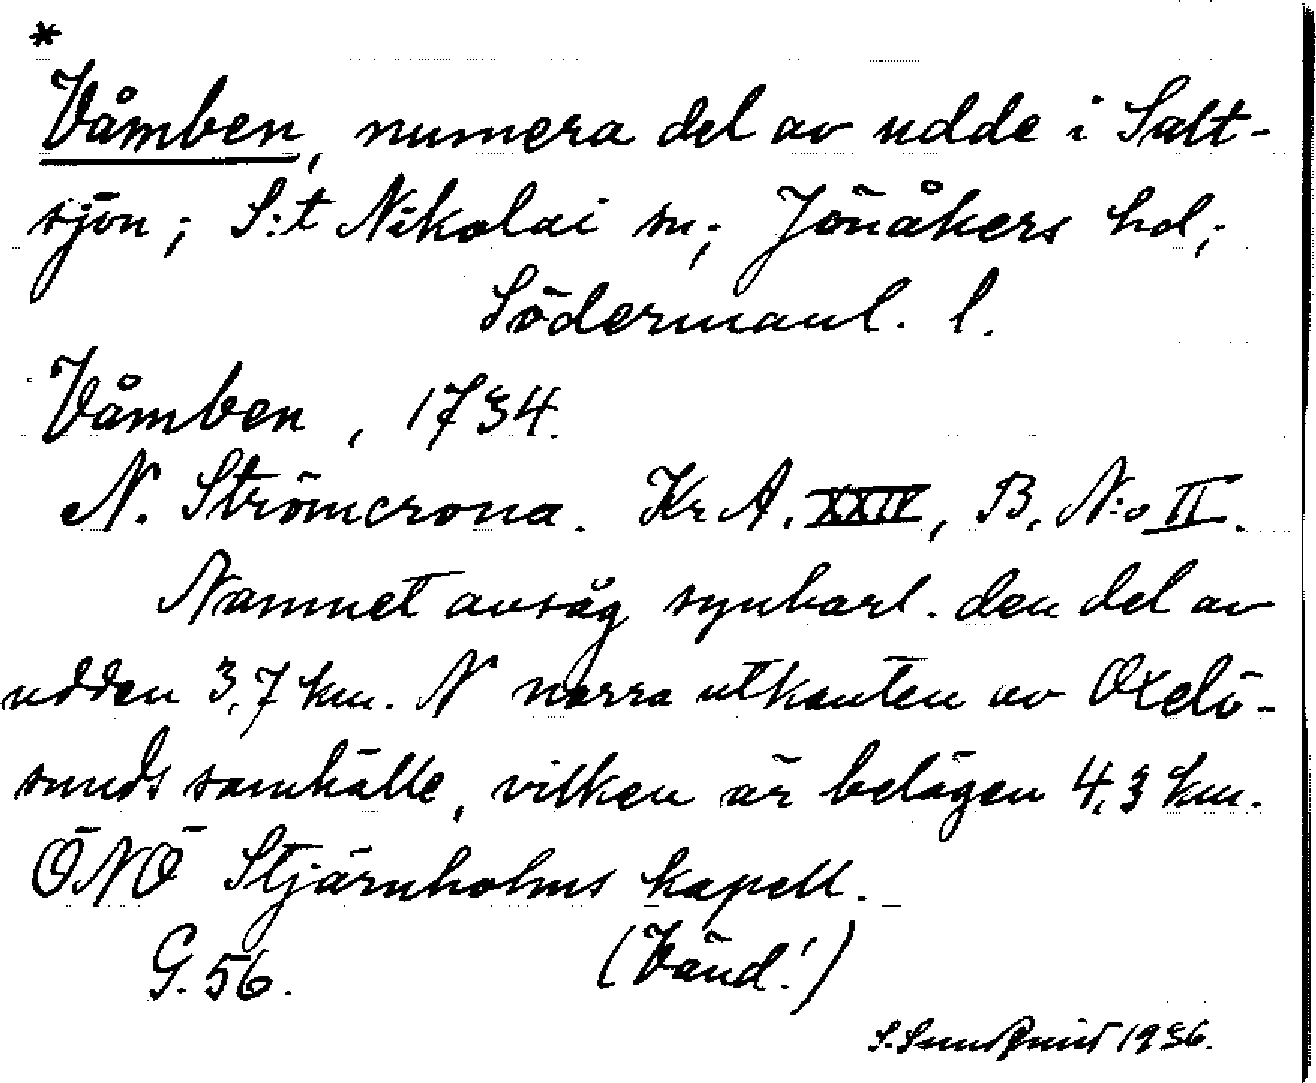 *
Våmben, numera del av udde i Salt-
sjön; S:t Nikolai sn; Jönåkers hd;
Södermanl. l.
Våmben, 1734.
N. Strömcrona. Kr. A. XXIV, B. N:o II.
Namnet avsåg synbarl. den del av
udden 3,7 km. N norra utkanten av Oxelö-
sunds samhälle, vilken är belägen 4,3 km.
ÖNÖ Stjärnholms kapell.
G. 56. (Vänd!)
S. Sundqvist 1936.